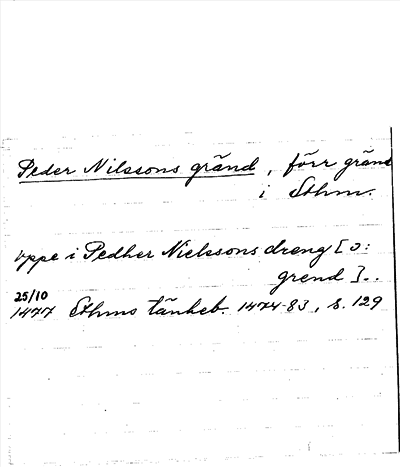 Peder Nilssons gränd, förr gränd
i Sthm.
uppe i Pedher Nielssons dreng [ɔ:
grend]..
25/10
1477 Sthms tänkeb. 1474-83, s. 129